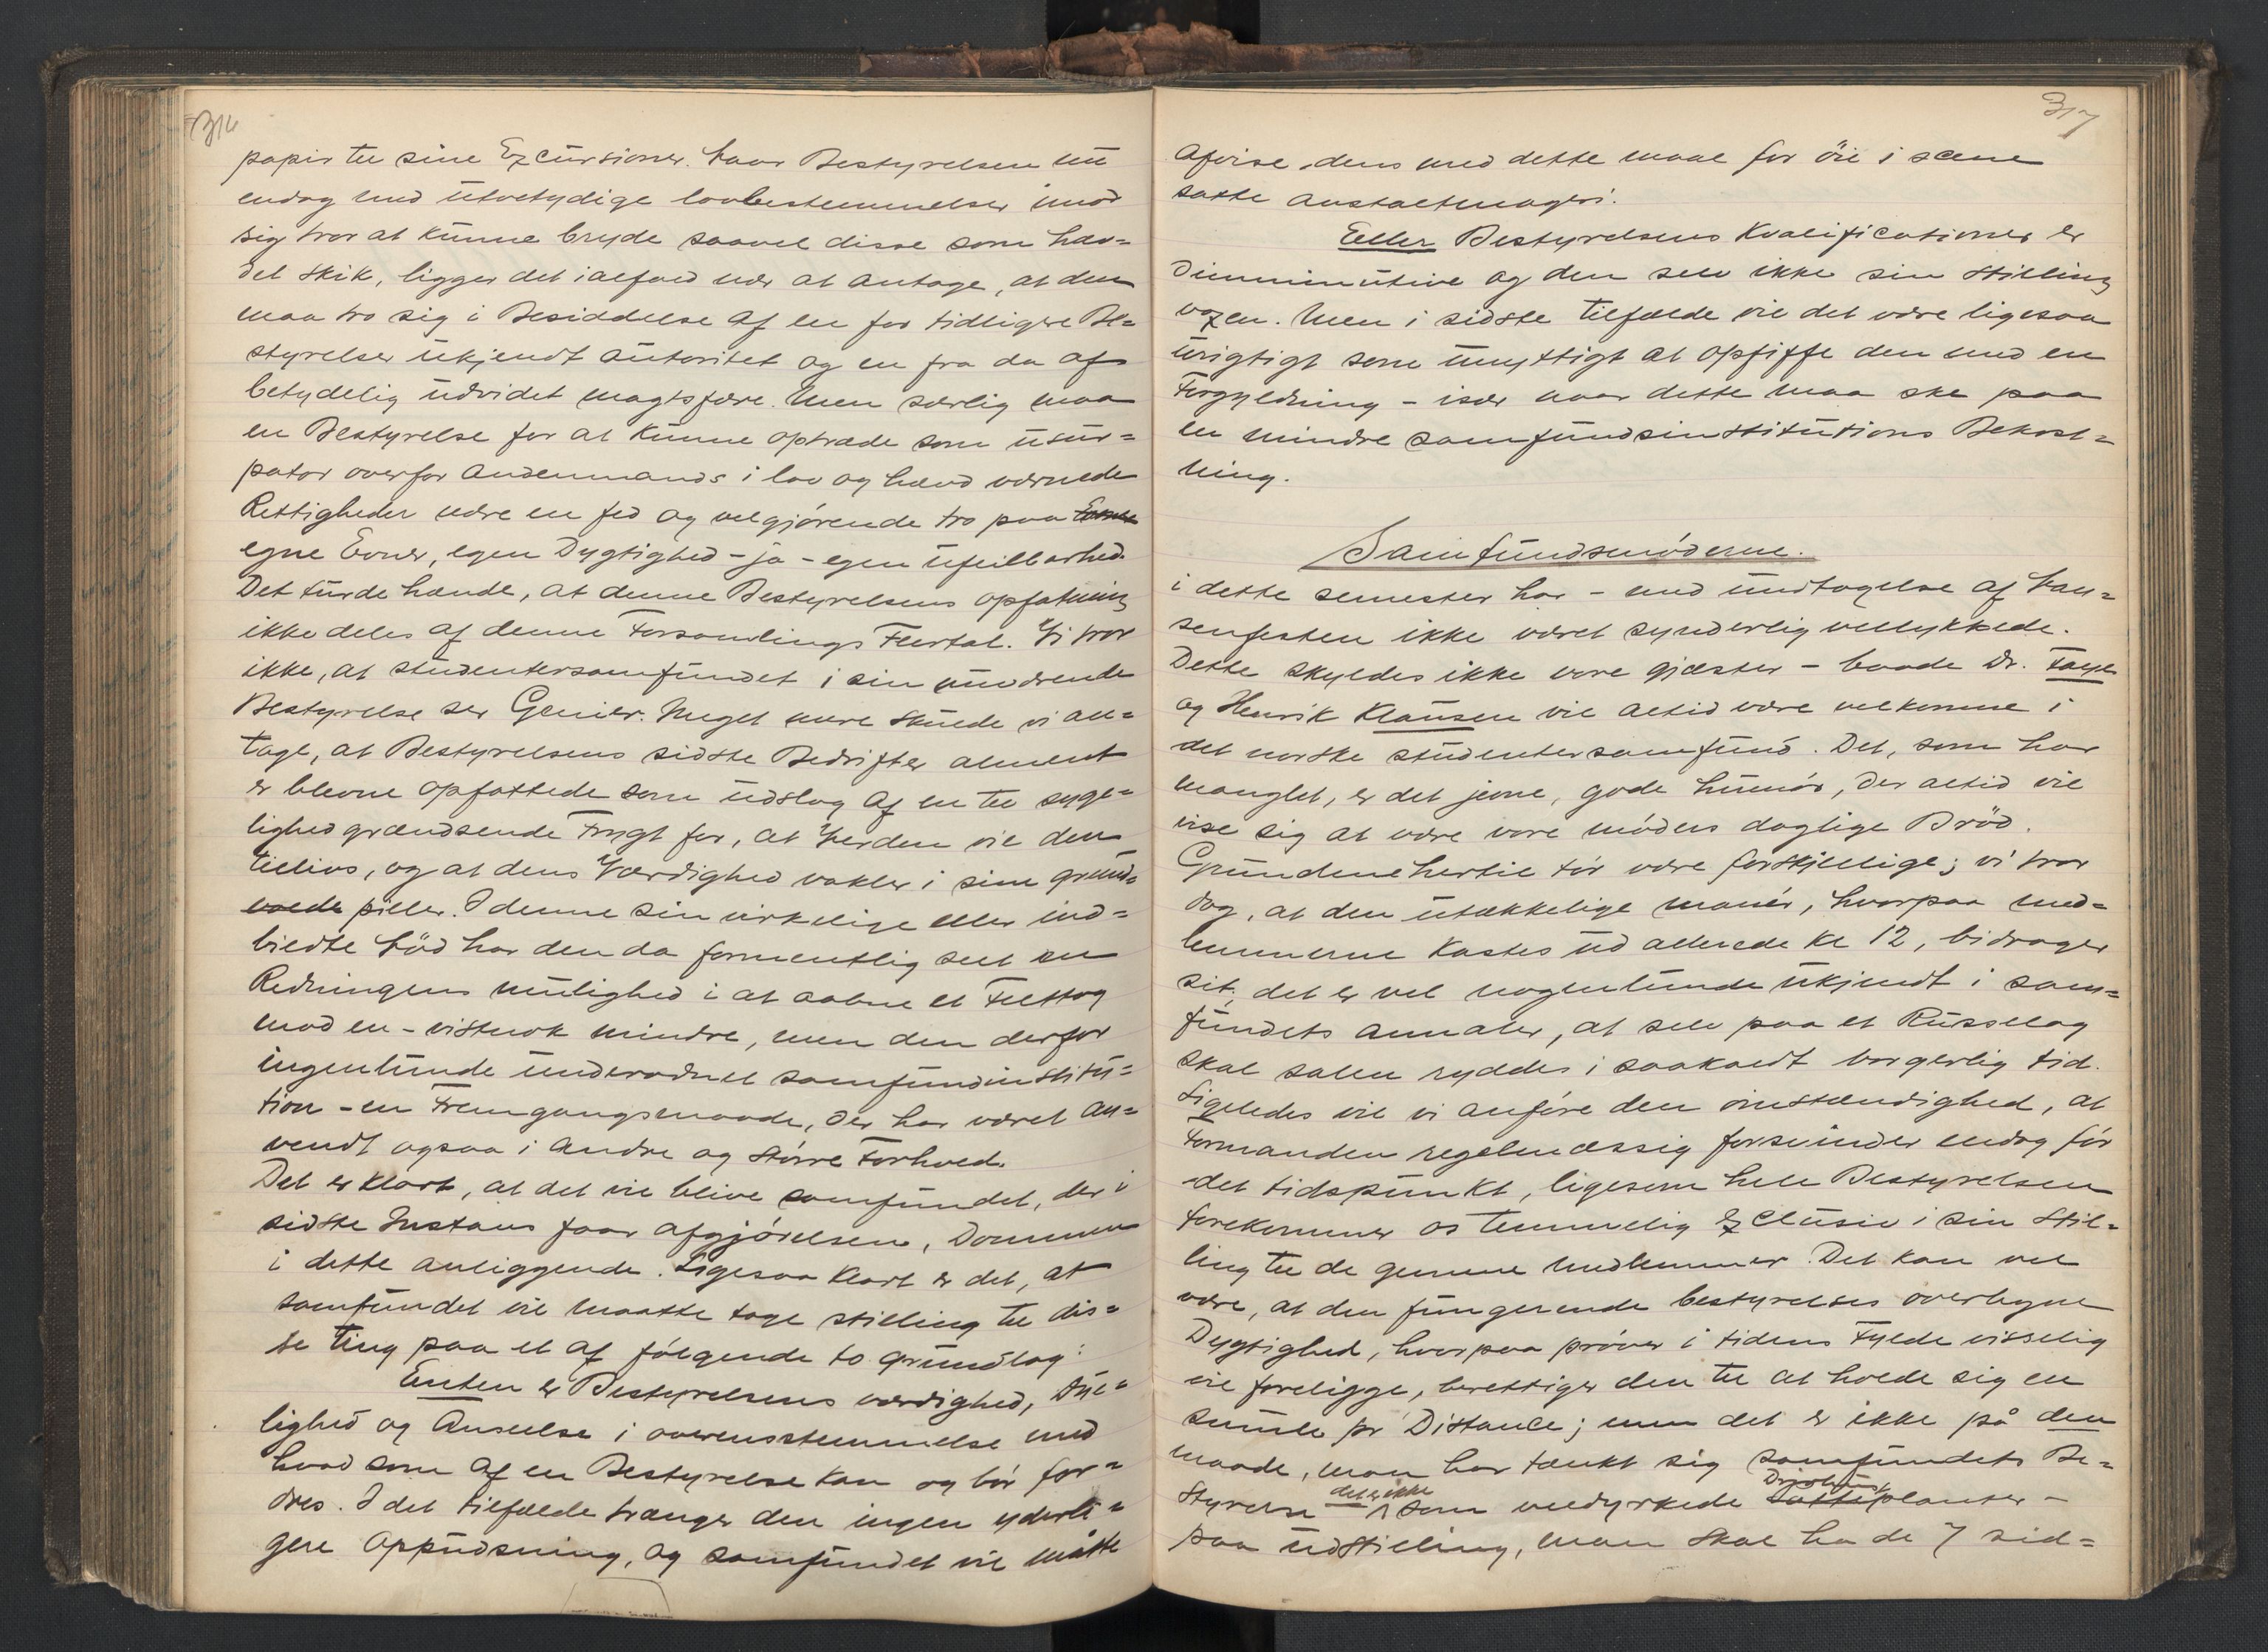 316
papir til sine Excursioner. Naar Bestyrelsen nu
endog med utvetydige lovbestemmelser imod
sig tror at kunne bryde saavel disse som hæv=
det skik, ligger det ialfald nær at antage, at den
maa tro sig i Besiddelse af en for tidligere Be=
styrelser ukjendt autoritet og en fra da af
betydelig udvidet magtsfære. Men særlig maa
en Bestyrelse for at kunne optræde som usur=
pator overfor andenmands i lov og hævd værnede
Rettigheder nære en fed og velgjørende tro paa
egne Evner, egen Dygtighed – ja – egen Ufeilbarhed.
Det turde hænde, at denne Bestyrelsens opfatning
ikke deles af denne Forsamlings Flertal. Vi tror
ikke, at studentersamfundet i sin nuværende
Bestyrelse ser Genier. Meget mere skulde vi an=
tage, at Bestyrelsens sidste Bedrifter alment
er blevne opfattede som udslag af en til syge=
lighed grændsende Frygt for, at Verden vil den
tillivs, og at dens Værdighed vakler i sine grund=
volde piller. I denne sin virkelige eller ind=
bildte Nød har den da formentlig seet en
Redningens mulighed i at aabne et Felttog
mod en – vistnok mindre, men den derfor
ingenlunde underordnet samfundsinstitu=
tion – en Fremgangsmaade, der har været an=
vendt ogsaa i andre og større Forhold.
Det er klart, at det vil blive samfundet, der i
sidste Instans faar afgjørelsen, Dommen
i dette anliggende. Ligesaa klart er det, at
samfundet vil maatte tage stilling til dis=
se ting paa et af følgende to grundlag:
Enten er Bestyrelsens værdighed, Due=
lighed og Anseelse i overensstemmelse med
hvad som af en Bestyrelse kan og bør for=
dres. I det tilfælde trænger den ingen yderli=
gere oppudsning, og samfundet vil måtte
317
afvise dens med dette maal for øie i scene
satte anstaltmageri.
Eller Bestyrelsens Kvalificationer er
diminutive og den selv ikke sin stilling
voxen. Men i sidste tilfælde vil det være ligesaa
urigtigt som unyttigt at opfiffe den med en
Forgyldning – især naar dette maa ske paa
en mindre samfundsinstitutions Bekost=
ning.
Samfundsmøderne.
i dette semester har – med undtagelse af Nan=
senfesten ikke været synderlig vellykkede.
Dette skyldes ikke vore gjæster – baade Dr. Faye
og Henrik Klausen vil altid være velkomne i
det norske studentersamfund. Det, som har
manglet, er det jevne, gode humør, der altid vil
vise sig at være vore møders daglige Brød.
Grundene hertil tør være forskjellige; vi tror
dog, at den utækkelige manér, hvorpaa med=
lemmerne kastes ud allerede kl 12, bidrager
sit, det er vel nogenlunde ukjendt i sam=
fundets annaler, at selv paa et Russelag
skal salen ryddes i saakaldt borgerlig tid.
Ligeledes vil vi anføre den omstændighed, at
Formanden regelmæssig forsvinder endog før
det tidspunkt, ligesom hele Bestyrelsen
forekommer os temmelig exclusiv i sin stil=
ling til de gemene medlemmer. Det kan vel
være, at den fungerende bestyrelses overlegne
Dygtighed, hvorpaa prøver i tidens Fylde visselig
vil foreligge, berettiger den til at holde sig en
smule pr Distance; men det er ikke på den
maade, man har tænkt sig samfundets Be=
styrelse – det er ikke som veldyrkede Drivhusplanter –
paa udstilling, man skal ha de 7 sid=